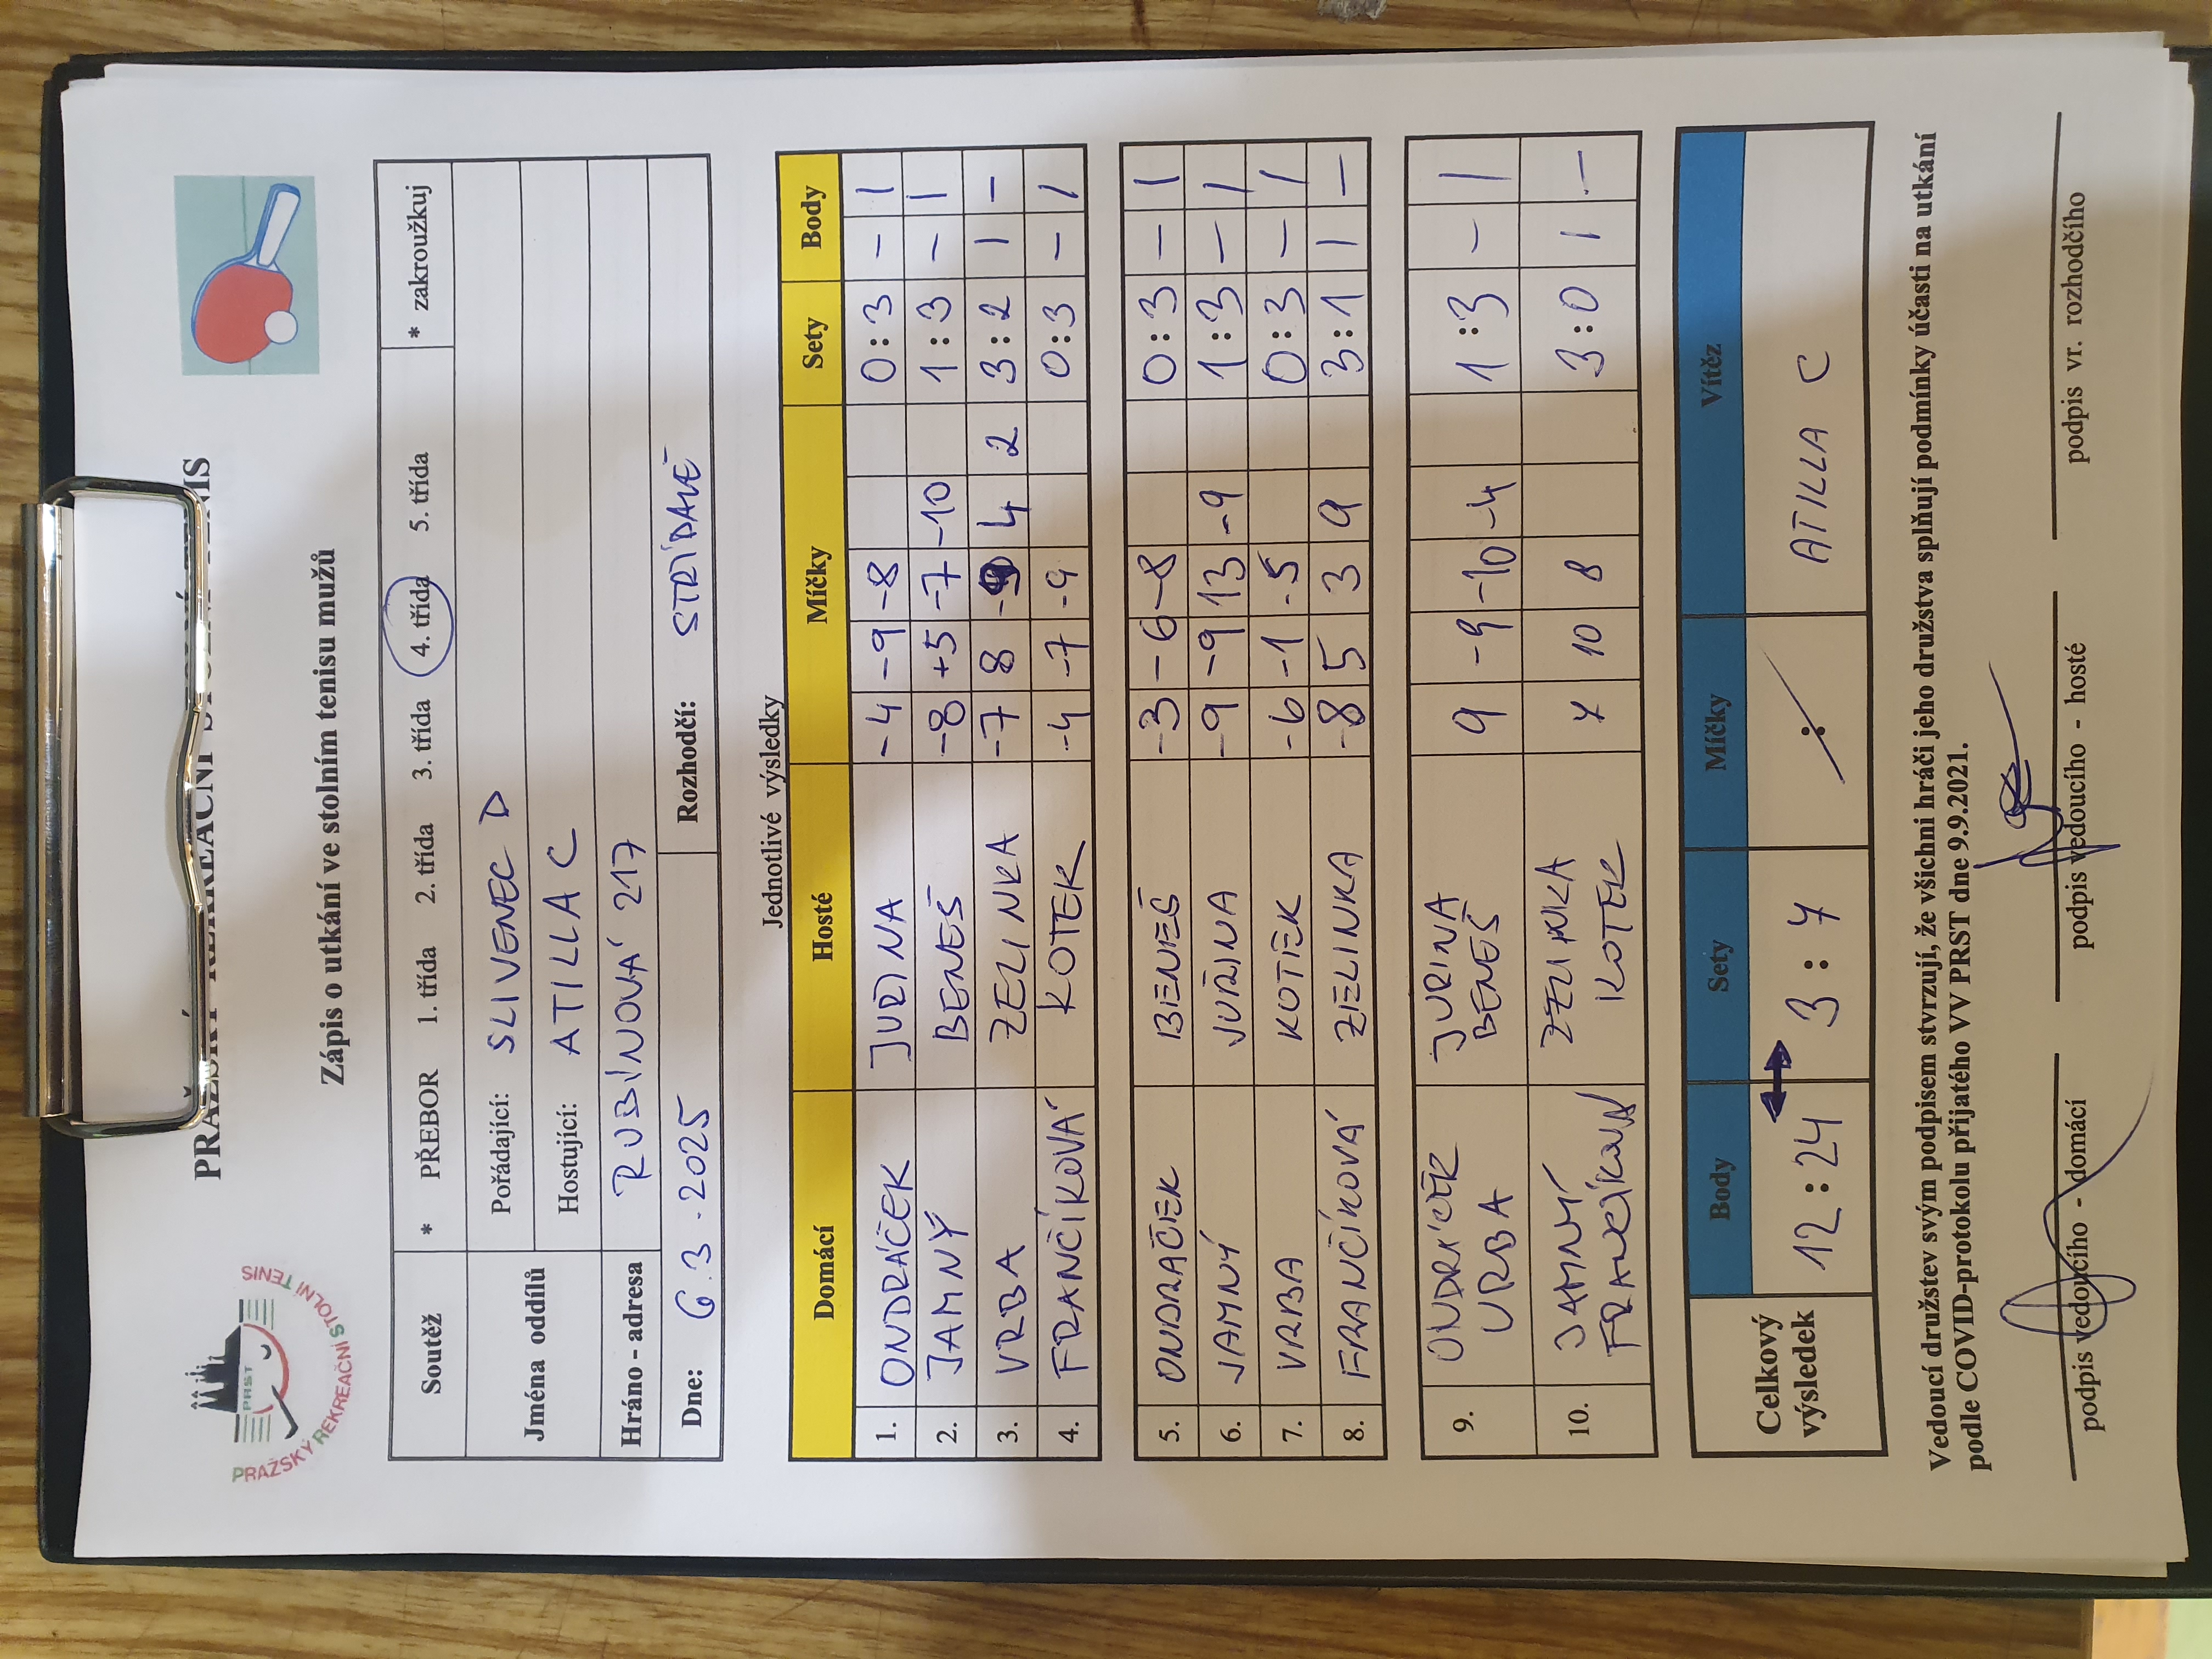 PRAŽSKÝ REKREAČNÍ STOLNÍ TENIS
PRST
PRAŽSKÝ REKREAČNÍ STOLNÍ TENIS
Zápis o utkání ve stolním tenisu mužů
Soutěž * PŘEBOR 1. třída 2. třída 3. třída 4. třída 5. třída * zakroužkuj
Jména oddílů Pořádající: SLIVENEC D
Hostující: ATILLA C
Hráno - adresa RUBÍNOVÁ 217
Dne: 6.3.2025 Rozhodčí: STŘÍDAVĚ
Jednotlivé výsledky
Domácí Hosté Míčky Sety Body
1. ONDRÁČEK JUŘINA -4 -9 -8 0:3 - 1
2. JAMNÝ BENEŠ -8 +5 -7 -10 1:3 - 1
3. VRBA ZELINKA -7 8 -9 4 2 3:2 1 -
4. FRANČÍKOVÁ KOTEK -4 -7 -9 0:3 - 1
5. ONDRÁČEK BENEŠ -3 -6 -8 0:3 - 1
6. JAMNÝ JUŘINA -9 -9 13 -9 1:3 - 1
7. VRBA KOTEK -6 -1 -5 0:3 - 1
8. FRANČÍKOVÁ ZELINKA -8 5 3 9 3:1 1 -
9. ONDRÁČEK JUŘINA 9 -9 -10 -4 1:3 - 1
VRBA BENEŠ
10. JAMNÝ ZELINKA 7 10 8 3:0 1 -
FRANČÍKOVÁ KOTEK
Celkový výsledek Body Sety Míčky Vítěz
12:24 ↔ 3:7 : ATILLA C
Vedoucí družstev svým podpisem stvrzují, že všichni hráči jeho družstva splňují podmínky účasti na utkání
podle COVID-protokolu přijatého VV PRST dne 9.9.2021.
podpis vedoucího - domácí podpis vedoucího - hosté podpis vr. rozhodčího